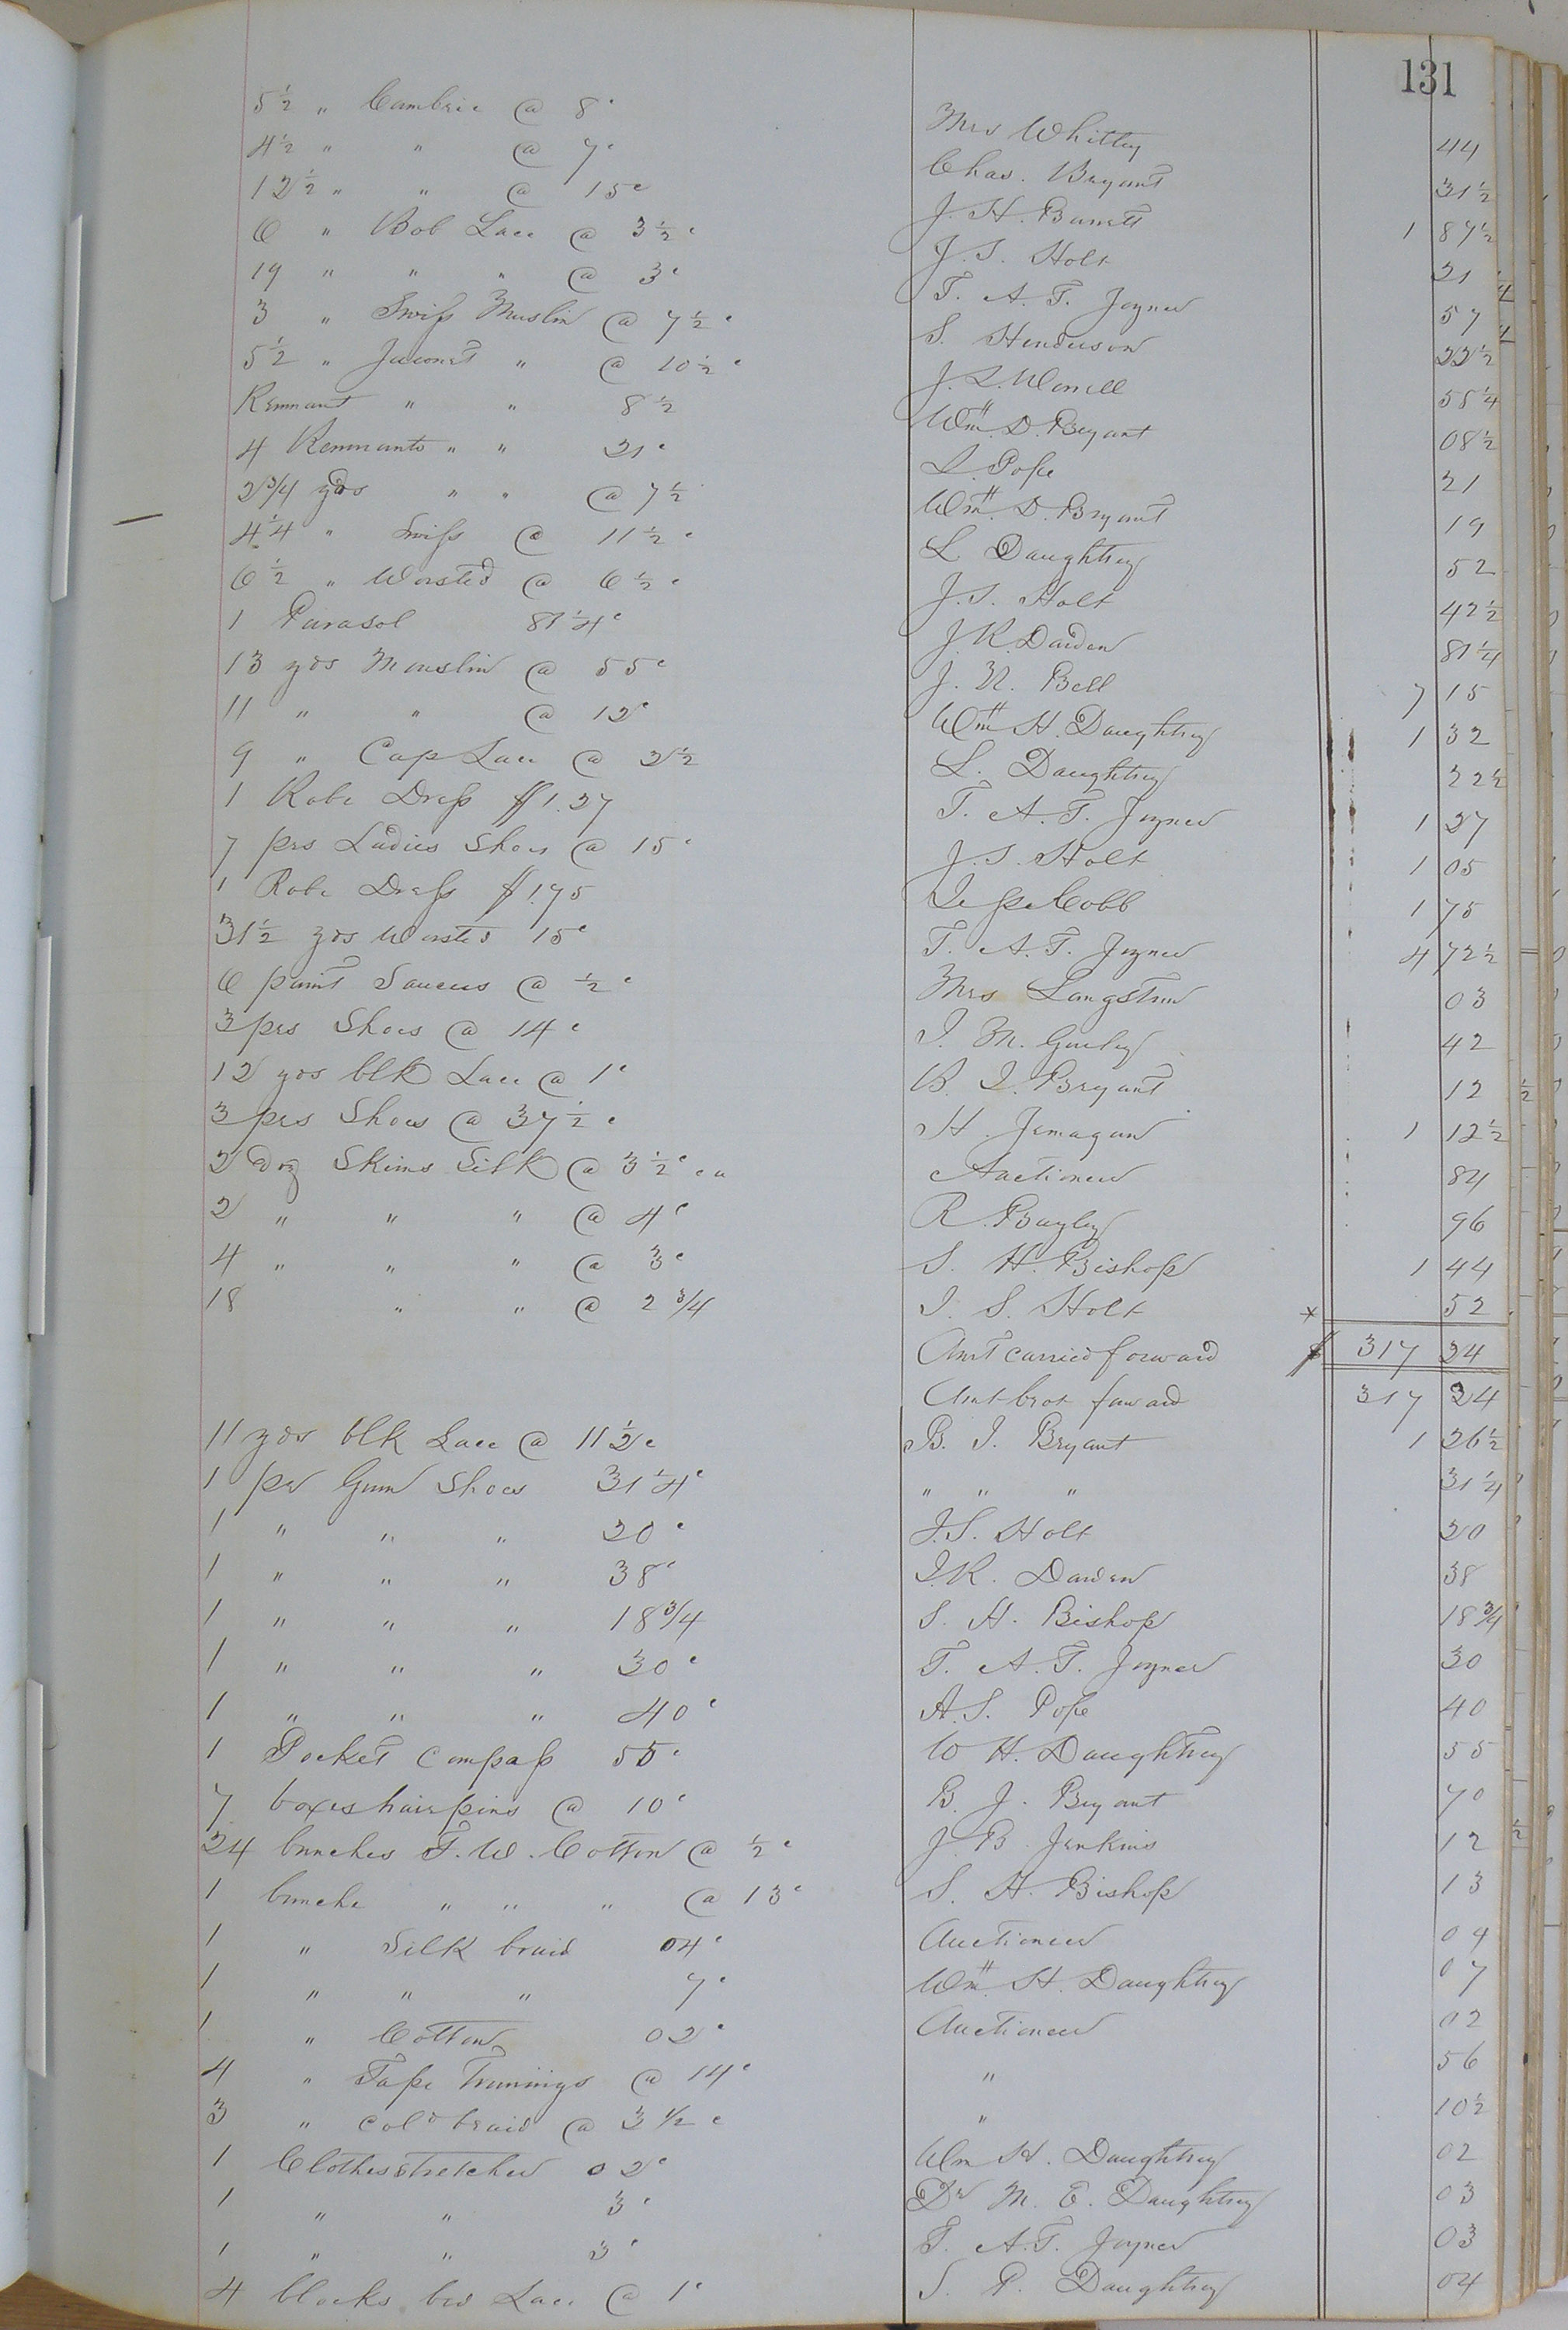 131
5½ " Cambric @ 8c Mrs Whitley 44
4½ " " @ 7c Chas. Bryant 31½
12½ " " @ 15c J. H. Barrett 1 87½
6 " Bob Lace @ 3½c J. S. Holt 21
19 " " " @ 3c T. A. T. Joyner 57
3 " Swiss Muslin @ 7½c S. Henderson 22½
5½ " Jaconet " @ 10½c J. L. Worrell 58¼
Remnant " " 8½ Wm. D. Bryant 08½
4 Remnants " " 21c L. Pope 21
2¾ yds " " @ 7½ Wm. D. Bryant 19
4¼ " Swiss @ 11½c L Daughtrey 52
6½ " Worsted @ 6½c J. S. Holt 42½
1 Parasol 81¼c J. R. Darden 81¼
13 yds Mouslin @ 55c J. N. Bell 7 15
11 " " @ 12c Wm H. Daughtrey 1 32
9 " Cap Lace @ 2½ L. Daughtrey 22½
1 Robe Dress $1.27 T. A. T. Joyner 1 27
7 prs Ladies Shoes @ 15c J. S. Holt 1 05
1 Robe Dress $1.75 Jesse Cobb 1 75
31½ yds Worsted 15c T. A. T. Joyner 4 72½
6 paint Saucers @ ½c Mrs Langston 03
3 prs Shoes @ 14c J. M. Gurley 42
12 yds blk Lace @ 1c B. J. Bryant 12
3 prs Shoes @ 37½c H. Jernagan 1 12½
2 Doz Skims Silk @ 3½c ea Auctioneer 84
2 " " " @ 4c R. Bayley 96
4 " " " @ 3c S. H. Bishop 1 44
18 " " @ 2¾ J. S. Holt x 52
Amt carried forward $ 317 24
Amt brot forward 317 24
11 yds blk Lace @ 11½c B. J. Bryant 1 26½
1 pr Gum Shoes 31¼c " " " 31¼
1 " " " 20c J. S. Holt 20
1 " " " 38c J. R. Darden 38
1 " " " 18¾ S. H. Bishop 18¾
1 " " " 30c T. A. T. Joyner 30
1 " " " 40c A. S. Pope 40
1 Pocket Compass 55c W H. Daughtrey 55
7 boxes hairpins @ 10c B. J. Bryant 70
24 bunches F. W. Cotton @ ½c J. B. Jenkins 12
1 bunche " " " @ 13c S. H. Bishop 13
1 " Silk braid 04c Auctioneer 04
1 " " " 7c Wm. H. Daughtrey 07
1 " Cotton 02c Auctioneer 02
4 " Tape Trimings @ 14c " 56
3 " Cold braid @ 3½c " 10½
1 Clothesstretcher 02c Wm H. Daughtrey 02
1 " " 3c Dr M. E. Daughtrey 03
1 " " 3c T. A. T. Joyner 03
4 blocks bro Lace @ 1c S. P. Daughtrey 04